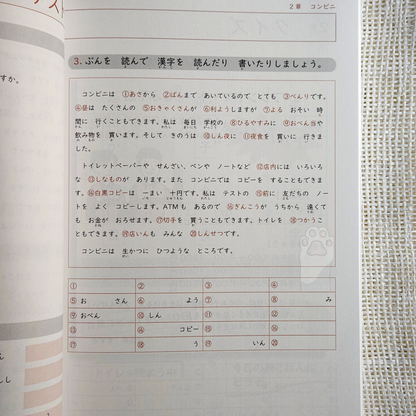 2章 コンビニ
3. ぶんを 読んで 漢字を 読んだり 書いたりしましょう。
コンビニは ①あさから ②ばんまで あいているので とても ③べんりです。
④昼は たくさんの ⑤おきゃくさんが ⑥利ようしますが ⑦よる おそい 時
間に 行くこともできます。私は 毎日 学校の ⑧ひるやすみに ⑨おべん当や
飲み物を 買います。そして きのうは ⑩しん夜に ⑪夜食を 買いに 行きま
した。
トイレットペーパーや せんざい、ペンや ノートなど ⑫店内には いろいろ
な ⑬しなものが あります。また コンビニでは コピーを することもできま
す。⑭白黒コピーは 一まい 十円です。私は テストの ⑮前に 友だちの ノー
トを よく コピーします。ATMも あるので ⑯ぎんこうが うちから 遠くて
も お金が おろせます。⑰切手を 買うこともできます。トイレを ⑱つかうこ
ともできます。⑲店いんも みんな ⑳しんせつです。
コンビニは 生かつに ひつような ところです。
① ② ③ ④
⑤ お さん ⑥ よう ⑦ ⑧ み
⑨ おべん ⑩ しん ⑪ ⑫
⑬ ⑭ コピー ⑮ ⑯
⑰ ⑱ う ⑲ いん ⑳
すか。